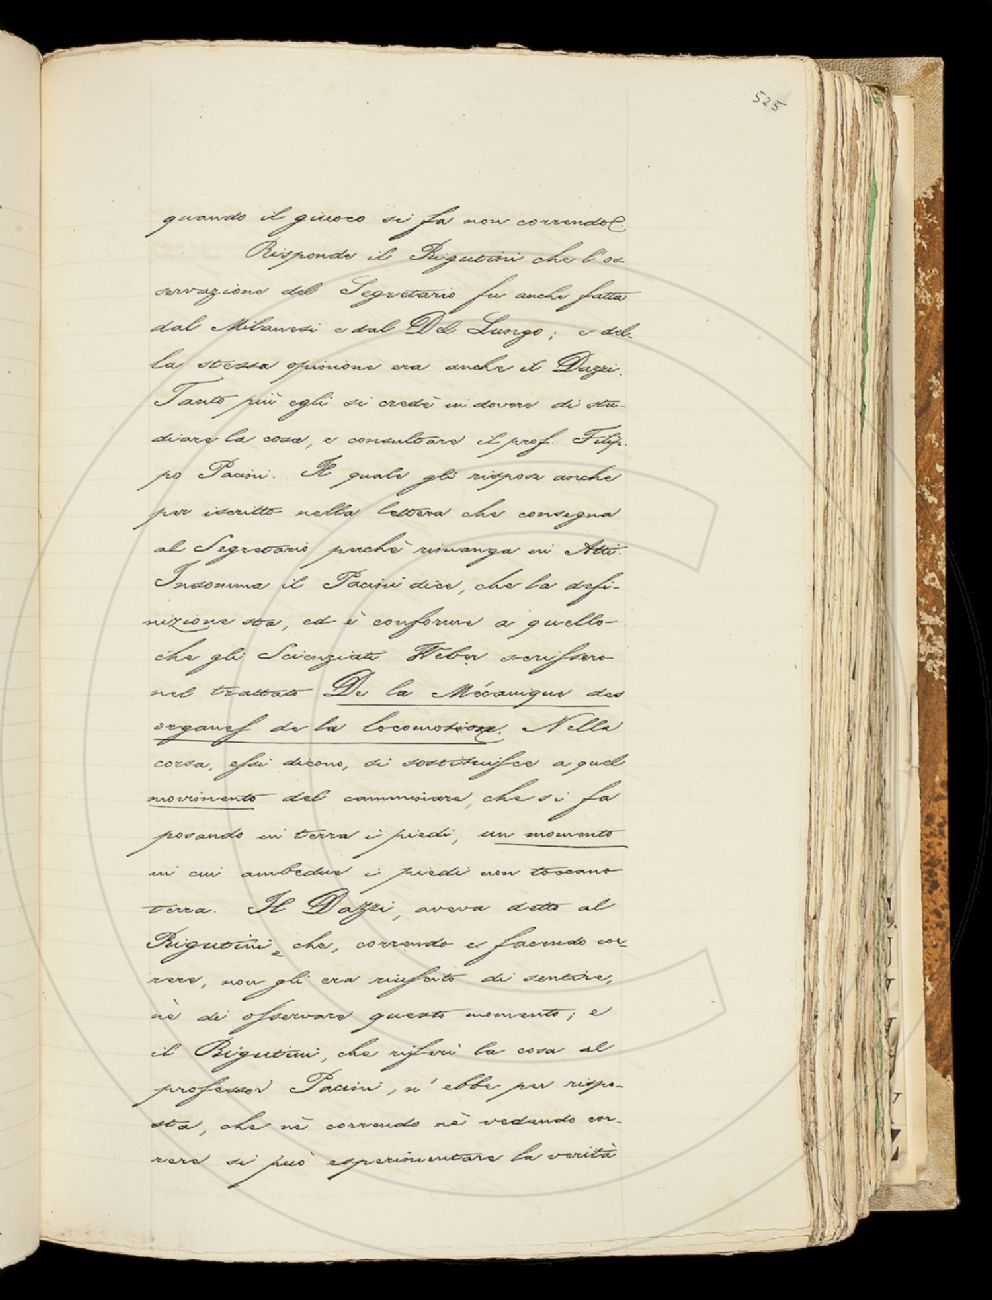 525
quando il giuoco si fa non correndo.
Risponde il Rigutini che l'os-
servazione del Segretario fu anche fatta
dal Milanesi e dal Del Lungo; e del-
la stessa opinione era anche il Dazzi.
Tanto più egli si credè in dovere di stu-
diare la cosa, e consultare il prof. Filip-
po Pacini. Il quale gli rispose anche
per iscritto nella lettera che consegna
al Segretario perchè rimanga in Atti.
Insomma il Pacini dice, che la defi-
nizione sta, ed è conforme a quello
che gli Scienziati Weber scrissero
nel trattato De la Mécanique des
organes de la locomotion. Nella
corsa, essi dicono, si sostituisce a quel
movimento del camminare, che si fa
posando in terra i piedi, un momento
in cui ambedue i piedi non toccano
terra. Il Dazzi, aveva detto al
Rigutini, che, correndo e facendo cor-
rere, non gli era riuscito di sentire,
nè di osservare questo momento; e
il Rigutini, che riferì la cosa al
professor Pacini, n'ebbe per rispo-
sta, che nè correndo nè vedendo cor-
rere si può esperimentare la verità